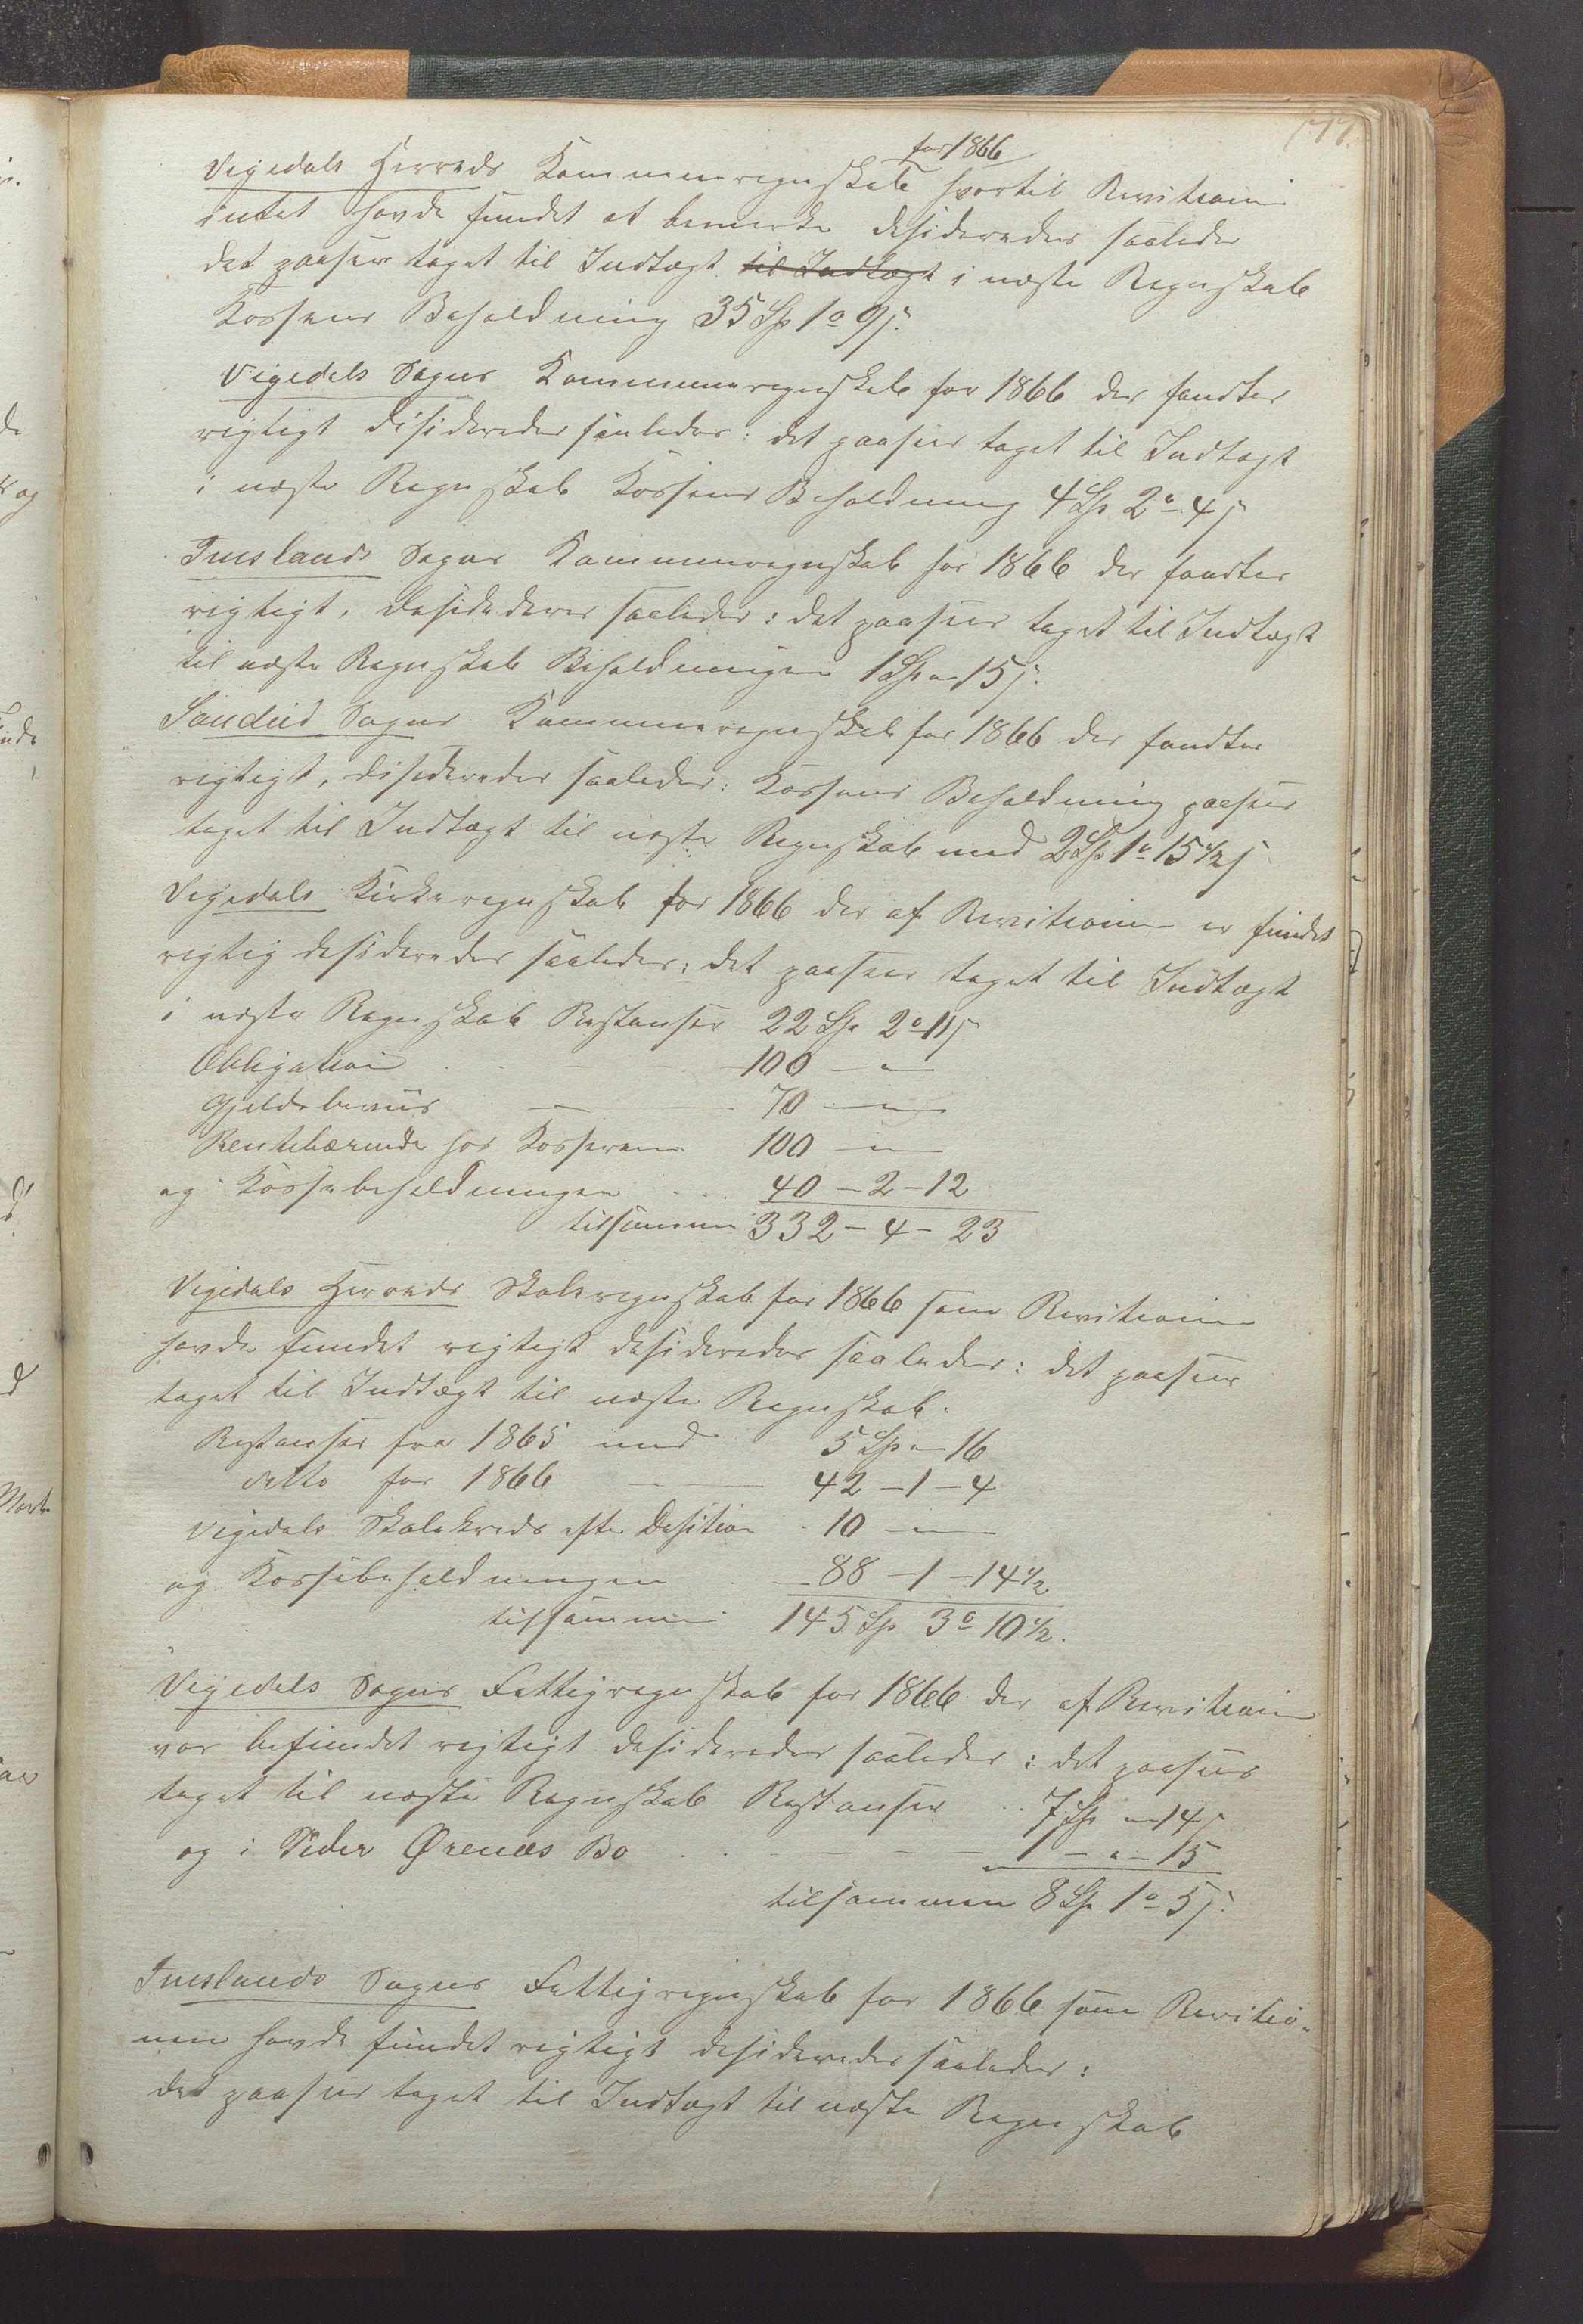 177.
for 1866
Vigedals Herreds Kommuneregnskab hvortil Revisionen
intet havde fundet at bemærke desideredes saaledes
det paasees taget til Indtægt til Indtægt i næste Regnskab
Kassens Beholdning 35 Sp 1 o 9 s.
Vigedals Sogns Kommuneregnskab for 1866 der fandtes
rigtigt desideredes saaledes: det paasees taget til Indtægt
i næste Regnskab Kassens Beholdning 4 Sp 2 o 4 s
Imslands Sogns Kommuneregnskab for 1866 der fandtes
rigtigt, desideredes saaledes: det paasees taget til Indtægt
til næste Regnskab Beholdningen 1 Sp " 15 s.
Sandeid Sogns Kommuneregnskab for 1866 der fandtes
rigtigt, desideredes saaledes: Kassens Beholdning paasees
taget til Indtægt til næste Regnskab med 2 Sp 1 o 15 1/2 s
Vigedals Kirkeregnskab for 1866 der af Revisionen er fundet
rigtig desideredes saaledes: det paasees taget til Indtægt
i næste Regnskab Restanser 22 Sp 2 o 11 s
Obligation - - - 100 - " -
Gjeldsbeviis - - 70 - " -
Rentebærende hos Kassereren 100 - " -
og Kassebeholdningen . . 40 - 2 - 12
tilsammen 332 - 4 - 23
Vigedals Herreds Skoleregnskab for 1866 som Revisionen
havde fundet rigtigt desideredes saaledes: det paasees
taget til Indtægt til næste Regnskab.
Restanser fra 1865 med 5 Sp " 16
ditto for 1866 - - 42 - 1 - 4
Vigedals Skolekreds efter Desition . 10 - " -
og Kassebeholdningen . - 88 - 1 - 14 1/2
tilsammen 145 Sp 3 o 10 1/2.
Vigedals Sogns Fattigregnskab for 1866 der af Revisionen
var befundet rigtigt desideredes saaledes: det paasees
taget til næste Regnskab Restanser . . 7 Sp " 14 s
og i Peder Ørenæs Bo . . - - - - 1 - " - 15
tilsammen 8 Sp 1 o 5 s.
Imslands Sogns Fattigregnskab for 1866 som Revisio-
nen havde fundet rigtigt desideredes saaledes:
det paasees taget til Indtægt til næste Regnskab